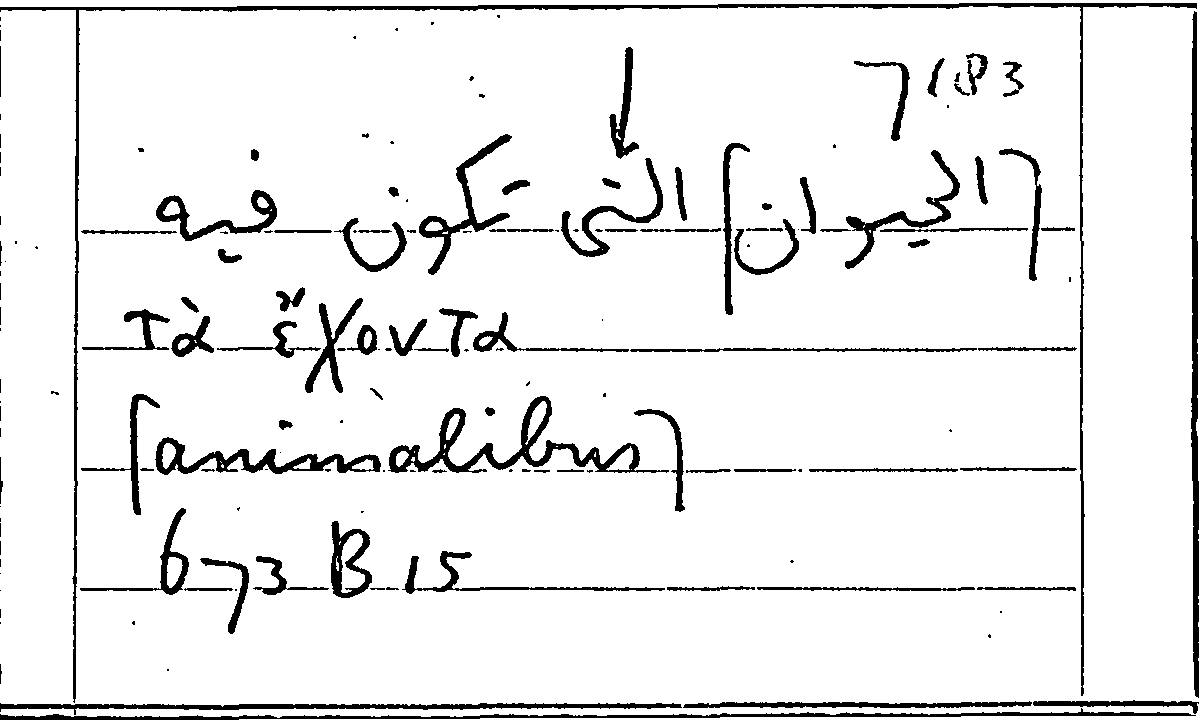 7183
[الحيوان] التي تكون فيه
τὰ ἔχοντα
[animalibus]
673 B 15